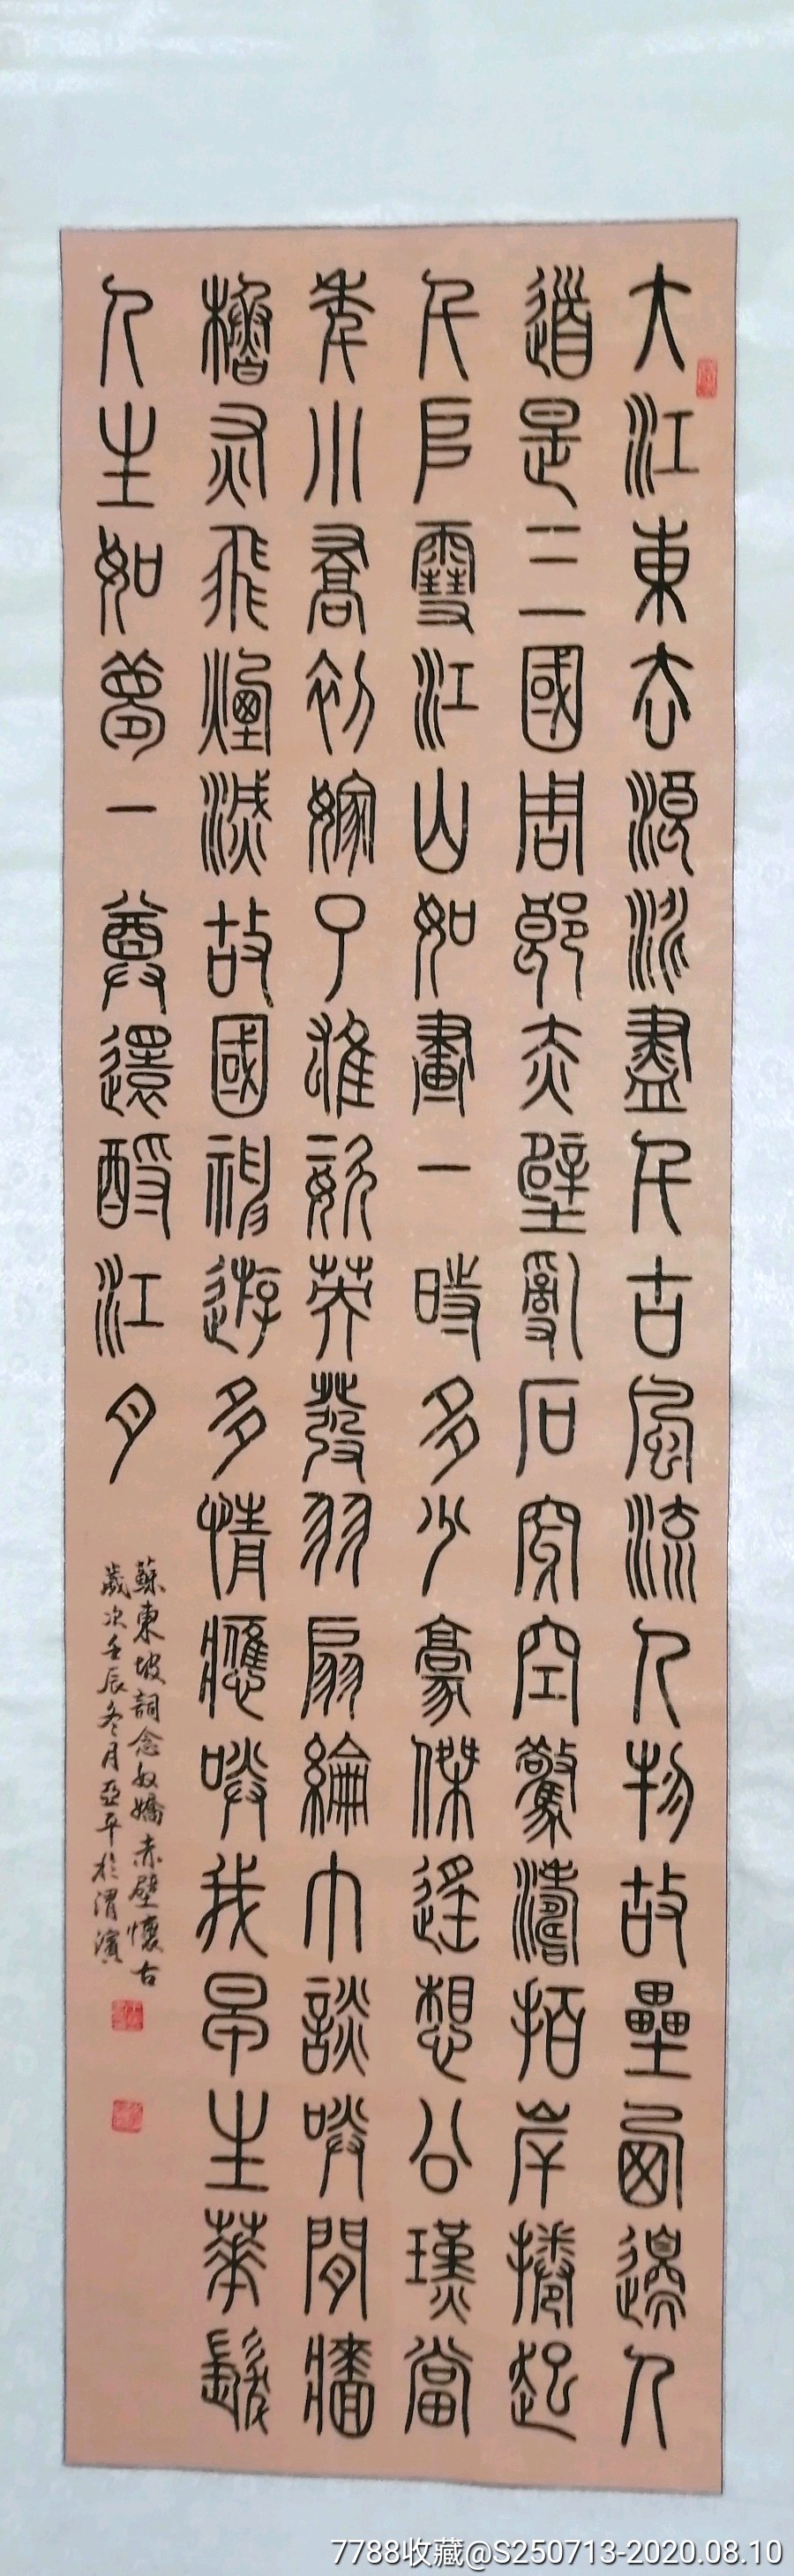 大江東去浪淘盡千古風流人物故壘西邊人
道是三國周郎赤壁亂石穿空驚濤拍岸捲起
千堆雪江山如畫一時多少豪傑遙想公瑾當
年小喬初嫁了雄姿英發羽扇綸巾談笑間牆
櫓灰飛煙滅故國神遊多情應笑我早生華髮
人生如夢一尊還酹江月
蘇東坡詞念奴嬌赤壁懷古
歲次壬辰冬月亞平於渭濱
7788收藏@S250713-2020.08.10